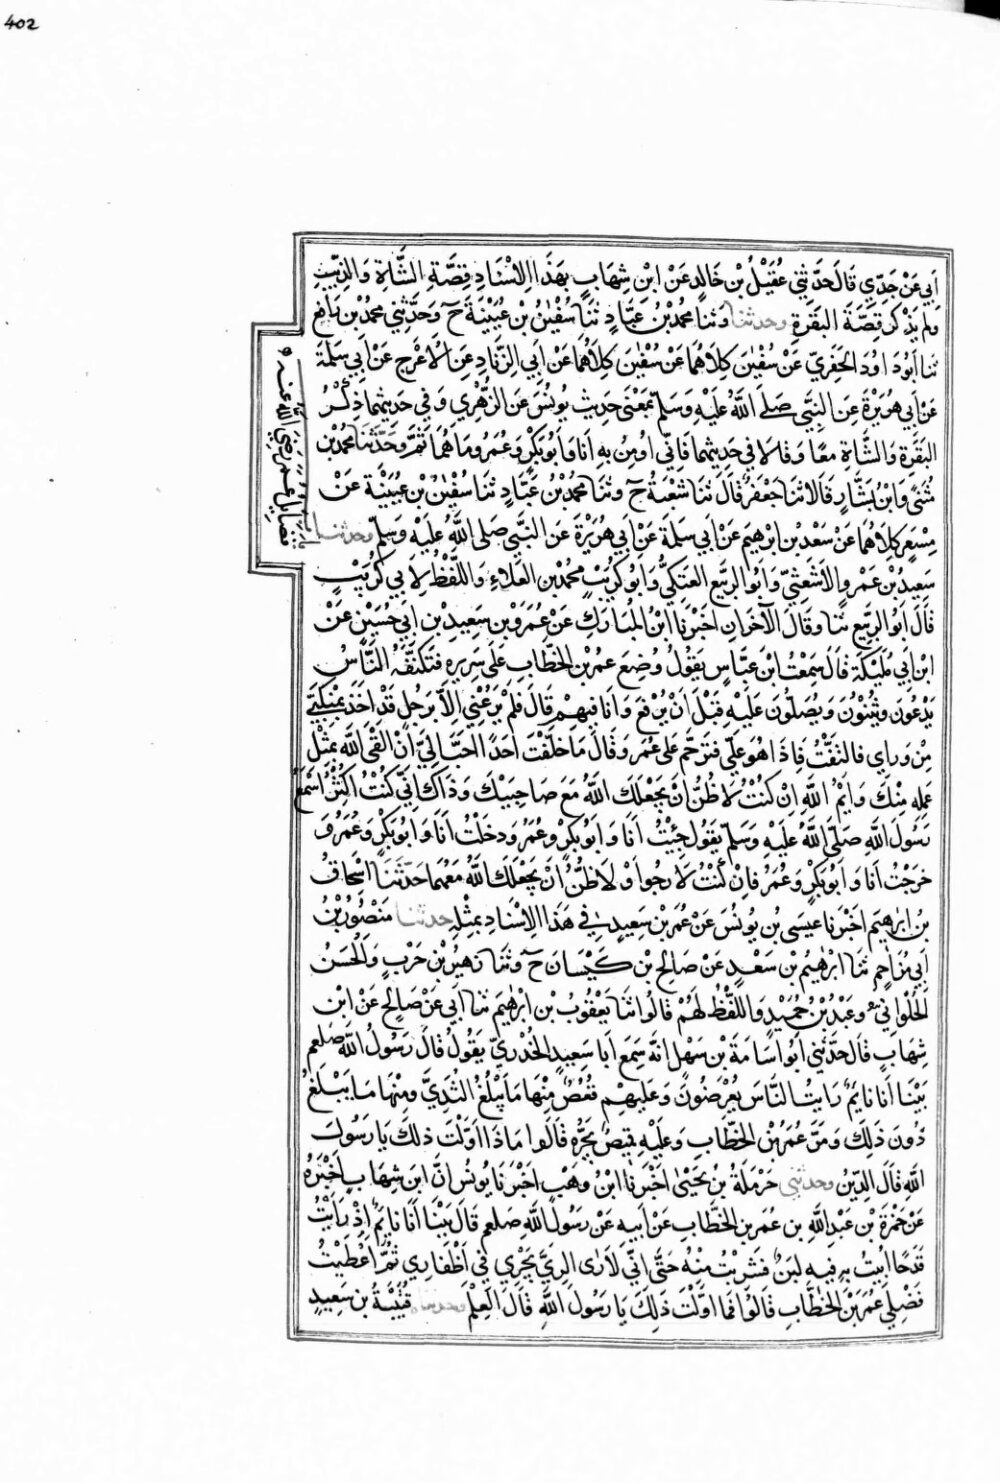 402
ابي عن جدي قال حدثني عقيل بن خالد عن ابن شهاب بهذا الاسناد قصة الشاة والذيب
ولم يذكر قصة البقرة وحدثنا وثنا محمد بن عباد ثنا سفين بن عيينة ح وحدثني محمد بن رافع
ثنا ابو داود الحفري عن سفين كلاهما عن سفين كلاهما عن ابي الزناد عن الاعرج عن ابي سلمة
عن ابي هريرة عن النبي صلى الله عليه وسلم بمعنى حديث يونس عن الزهري وفي حديثهما ذكر
البقرة والشاة معا وقالا في حديثهما فاني اومن به انا وابو بكر وعمر وما هما ثم وحدثنا محمد بن
مثنى وابن بشار قالا ثنا جعفر قال ثنا شعبة ح وثنا محمد بن عباد ثنا سفين بن عيينة عن
مسعر كلاهما عن سعد بن ابرهيم عن ابي سلمة عن ابي هريرة عن النبي صلى الله عليه وسلم وحدثنا
سعيد بن عمرو الاشعثي وابو الربيع العتكي وابو كريب محمد بن العلاء واللفظ لابي كريب
قال ابو الربيع ثنا وقال الآخران اخبرنا ابن المبارك عن عمرو بن سعيد بن ابي حسين عن
ابن ابي مليكة قال سمعت ابن عباس يقول وضع عمر بن الخطاب على سريره فتكنفه الناس
يدعون ويثنون ويصلون عليه قبل ان يرفع وانا فيهم قال فلم يرعني الا برجل قد اخذ بمنكبي
من وراي فالتفت فاذا هو علي فترحم على عمر وقال ما خلفت احدا احب الي ان القى الله بمثل
عمله منك وايم الله ان كنت لاظن ان يجعلك الله مع صاحبيك وذاك اني كنت اكثر اسمع
رسول الله صلى الله عليه وسلم يقول جئت انا وابو بكر وعمر ودخلت انا وابو بكر وعمر و
خرجت انا وابو بكر وعمر فان كنت لارجوا او لاظن ان يجعلك الله معهما حدثنا اسحاق
بن ابرهيم اخبرنا عيسى بن يونس عن عمر بن سعيد في هذا الاسناد بمثله حدثنا منصور بن
ابي مزاحم ثنا ابرهيم بن سعد عن صالح بن كيسان ح وثنا زهير بن حرب والحسن
الحلواني وعبد بن حميد واللفظ لهم قالوا ثنا يعقوب بن ابرهيم ثنا ابي عن صالح عن ابن
شهاب قال حدثني ابو اسامة بن سهل انه سمع ابا سعيد الخدري يقول قال رسول الله صلعم
بينا انا نايم رايت الناس يعرضون وعليهم قمص منها ما يبلغ الثدي ومنها ما يبلغ
دون ذلك ومر عمر بن الخطاب وعليه قميص يجره قالوا ماذا اولت ذلك يا رسول
الله قال الدين وحدثني حرملة بن يحيى اخبرنا ابن وهب اخبرنا يونس ان ابن شهاب اخبره
عن حمزة بن عبد الله بن عمر بن الخطاب عن ابيه عن رسول الله صلعم قال بينا انا نايم اذ رايت
قدحا اتيت به فيه لبن فشربت منه حتى اني لارى الري يجري في اظفاري ثم اعطيت
فضلي عمر بن الخطاب قالوا فما اولت ذلك يا رسول الله قال العلم وحدثنا قتيبة بن سعيد
فضايل عمر رضي الله عنه